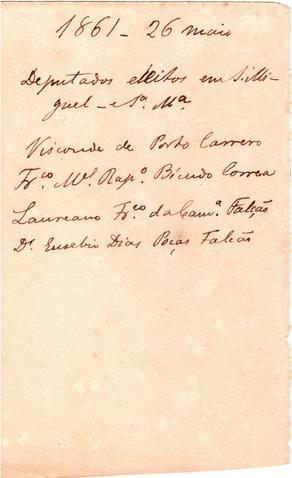 1861 - 26 maio
Deputados elleitos em S. Mi-
guel - e Sª. Mª
Visconde de Porto Carrero
Frco. Mel. Rapº. Bicudo Correa
Laureano Frco. da Camª. Falcão
Dr. Eusebio Dias Poças Falcão